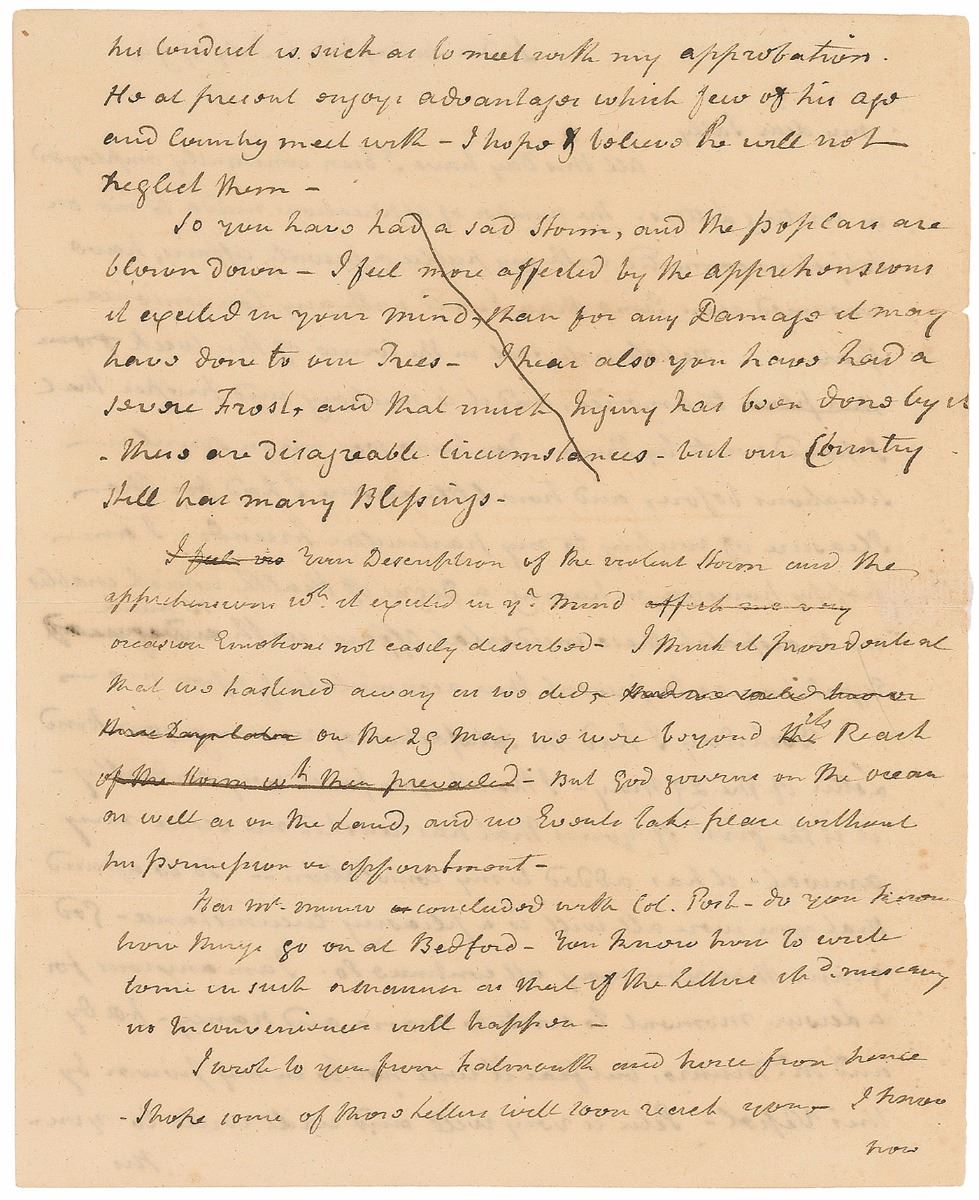 his Conduct is such as to meet with my approbation.
He at present enjoys advantages which few of his age
and Country meet with – I hope & believe he will not
neglect them –
So you have had a sad Storm, and the poplars are
blown down – I feel more affected by the apprehensions
it excited in your mind, than for any Damage it may
have done to our Trees – I hear also you have had a
severe Frost, and that much Injury has been done by it
- these are disagreable Circumstances - but our Country
still has many Blessings -
I feel no Your Description of the violent Storm and the
apprehensions wh. it excited in yr. mind affects me very
occasion Emotions not easily described - I think it providential
that we hastened away as we did, Had we sailed two or
three Days later on the 29 May we were beyond the its Reach
of the Storm wh. then prevailed - But God governs on the ocean
as well as on the Land, and no Events take place without
his permission or appointment -
Has Mr. Munro concluded with Col. Post - do you know
how things go on at Bedford - You know how to write
to me in such a manner as that if the Letters shd. miscarry
no Inconveniences will happen -
I wrote to you from Falmouth and twice from hence
- I hope some of those Letters will soon reach you - I know
how